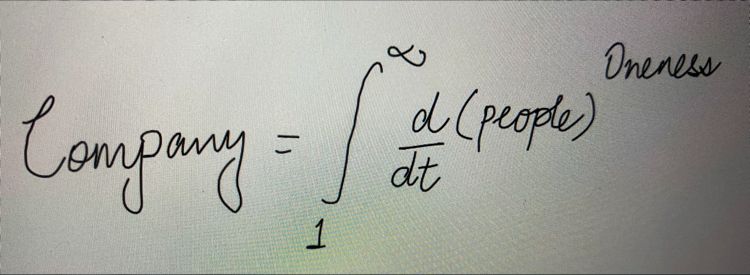 Company = ∫₁^∞ d/dt (people)^Oneness